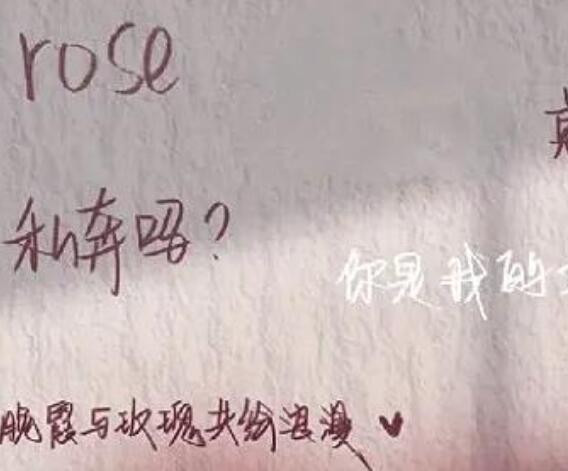 rose
私奔吗?
你是我的
晚霞与玫瑰共纷浪漫